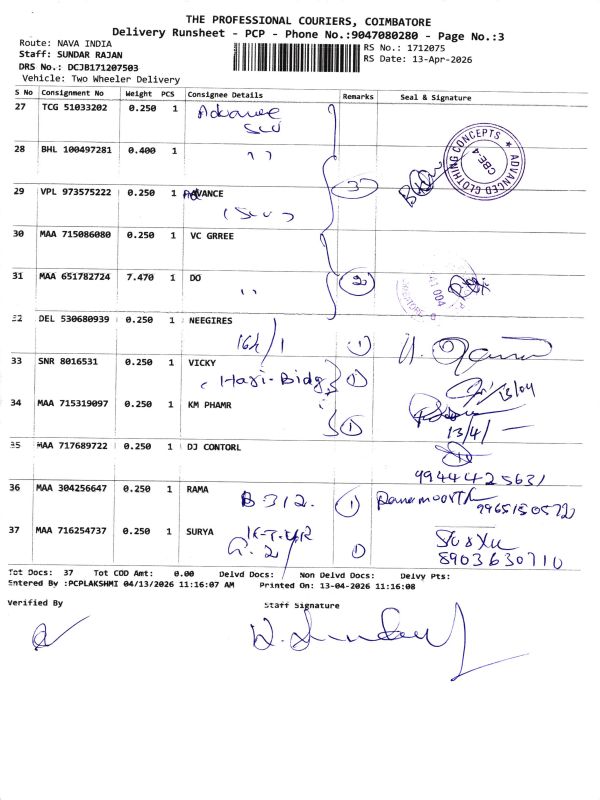 THE PROFESSIONAL COURIERS, COIMBATORE
Delivery Runsheet - PCP - Phone No.:9047080280 - Page No.:3
Route: NAVA INDIA
RS No.: 1712075
Staff: SUNDAR RAJAN
RS Date: 13-Apr-2026
DRS No.: DCJB171207503
Vehicle: Two Wheeler Delivery
S No Consignment No Weight PCS Consignee Details Remarks Seal & Signature
27 TCG 51033202 0.250 1 Advance
SLU
28 BHL 100497281 0.400 1 ,,
ADVANCED CLOTHING CONCEPTS ★ CBE-4
29 VPL 973575222 0.250 1 ADVANCE 3
(SLU)
30 MAA 715086080 0.250 1 VC GRREE
31 MAA 651782724 7.470 1 DO 2
,,
32 DEL 530680939 0.250 1 NEEGIRES
164/1 1
33 SNR 8016531 0.250 1 VICKY
Hari-Bidg 1
13/04
34 MAA 715319097 0.250 1 KM PHAMR
1 13/4/
35 MAA 717689722 0.250 1 DJ CONTORL
9944425631
36 MAA 304256647 0.250 1 RAMA
B-312. 1 Ramamoorth
9965150572
37 MAA 716254737 0.250 1 SURYA K-T-VR
G-2/ 1 Surya
8903630710
Tot Docs: 37 Tot COD Amt: 0.00 Delvd Docs: Non Delvd Docs: Delvy Pts:
Entered By :PCPLAKSHMI 04/13/2026 11:16:07 AM Printed On: 13-04-2026 11:16:08
Verified By Staff Signature